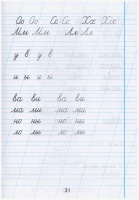 Оо Оо Сс Сс Хх Хх
Мм Мм Лл Лл
у в у в
и ы и ы
ва ви ва ви
ма ми ма ми
но ны но ны
ло лы ло лы
31